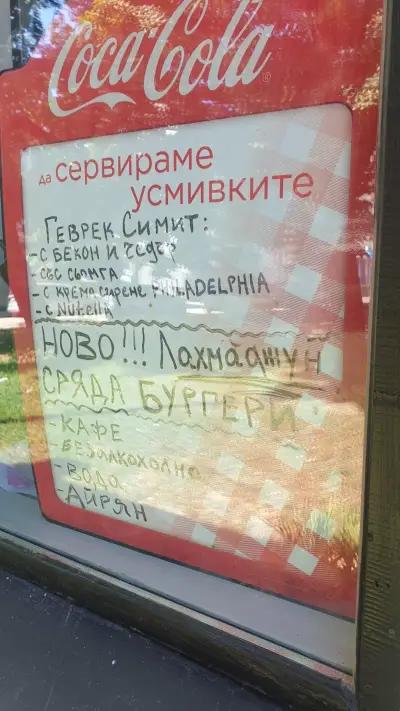 Coca-Cola
да сервираме
усмивките
ГЕВРЕК СИМИТ:
- С БЕКОН И ЧЕДЪР
- СЪС СЬОМГА
- С КРЕМА СИРЕНЕ PHILADELPHIA
- С Nutella
НОВО!!! Лахмаджун
СРЯДА БУРГЕРИ
- КАФЕ
- БЕЗАЛКОХОЛНО
- ВОДА
- АЙРЯН